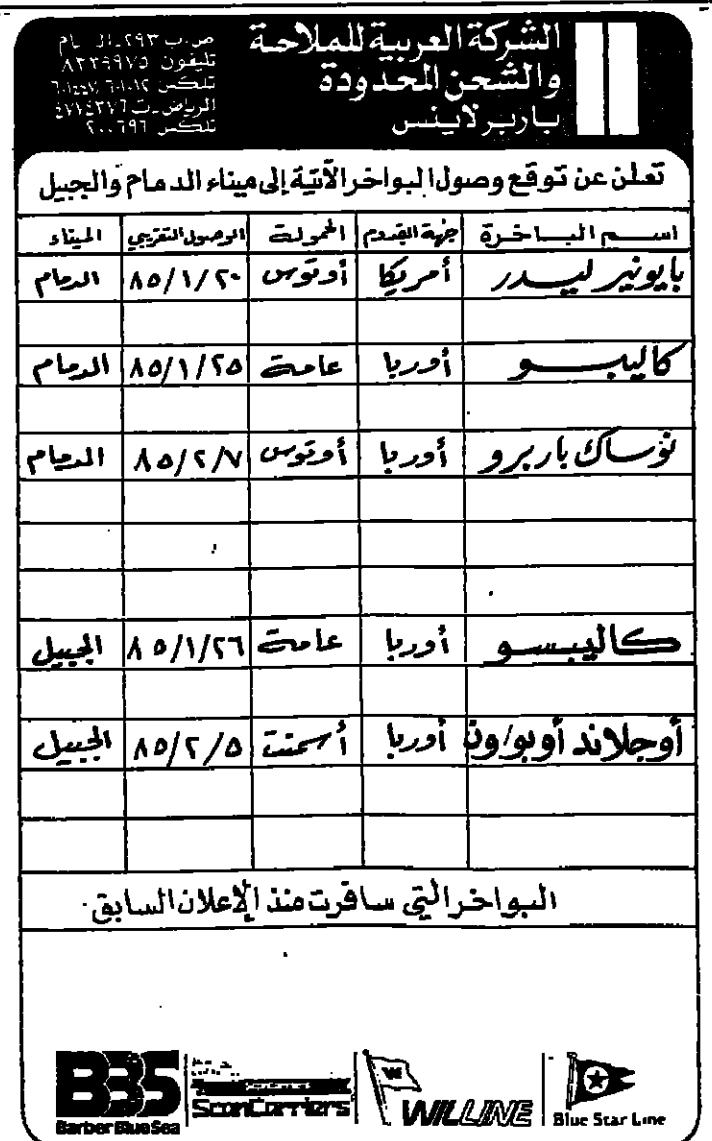 الشركة العربية للملاحة
والشحن المحدودة
باربر لاينس
ص.ب ٢٩٣
تليفون ٨٣٣٩٩٧٥
تلكس
الرياض ت ٤٧١٤٣٧٦
تلكس ٢٠٠٦٩٦
تعلن عن توقع وصول البواخر الآتية إلى ميناء الدمام والجبيل
اسم الباخرة جهة القدوم الحمولة الوصول التقريبي الميناء
بايونير ليدر أمريكا أوتوس ٨٥/١/٢٠ الدمام
كاليبسو أوربا عامة ٨٥/١/٢٥ الدمام
نوساك باربرو أوربا أوتوس ٨٥/٢/٧ الدمام
كاليبسو أوربا عامة ٨٥/١/٢٦ الجبيل
أوجلاند أوبو/ون أوربا أسمنت ٨٥/٢/٥ الجبيل
البواخر التي سافرت منذ الإعلان السابق.
BBS
Barber Blue Sea
ScanCarriers
W
WILLINE
Blue Star Line